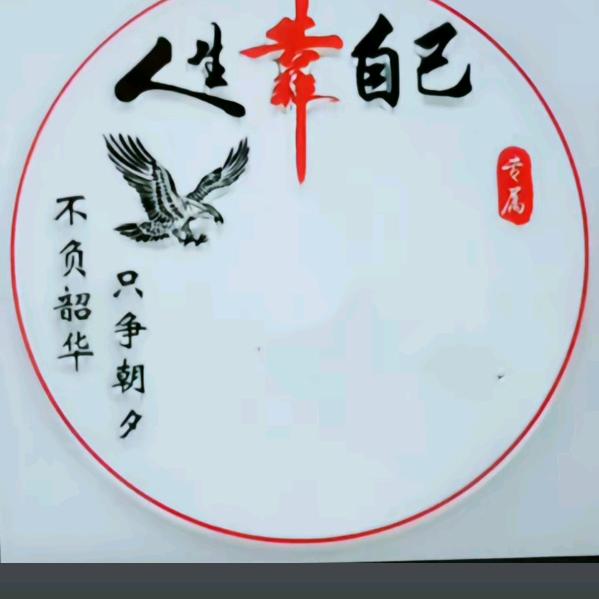 人生靠自己
专属
只争朝夕
不负韶华